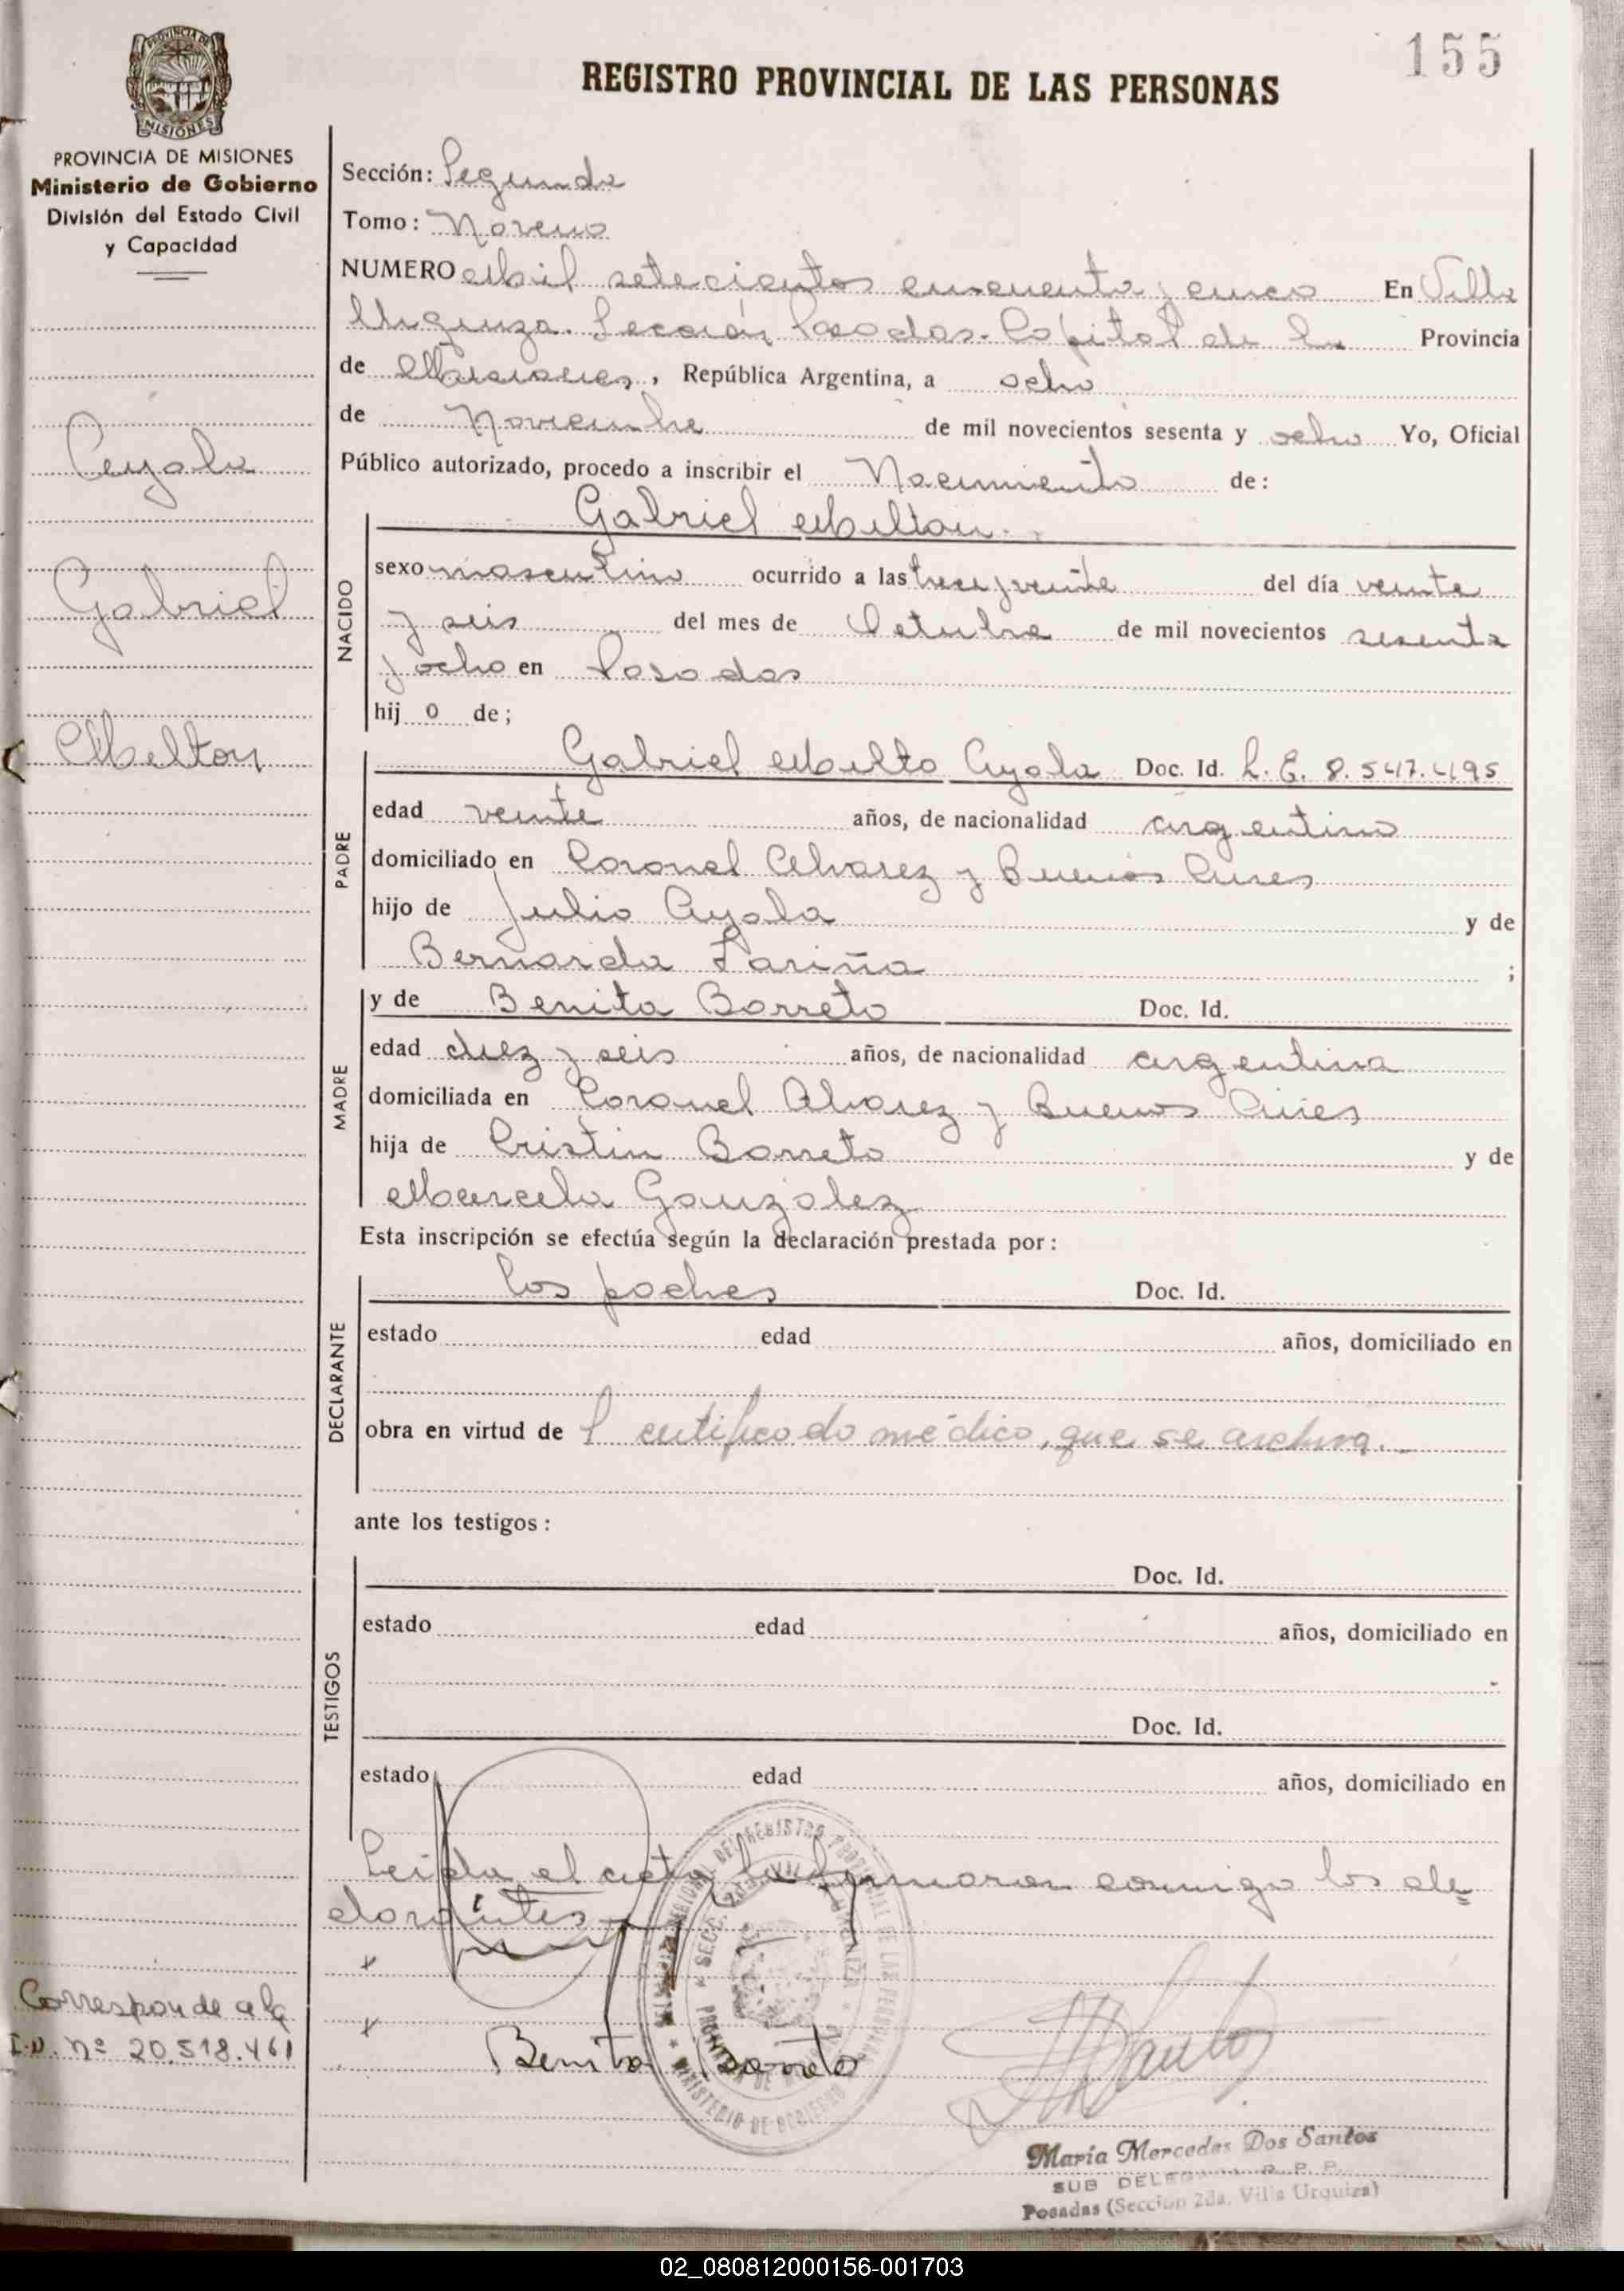 155
REGISTRO PROVINCIAL DE LAS PERSONAS
PROVINCIA DE MISIONES
MISIONES
PROVINCIA DE MISIONES
Ministerio de Gobierno
División del Estado Civil
y Capacidad
Ayala
Gabriel
Milton
Sección: Segunda
Tomo: Noveno
NUMERO Mil setecientos cincuenta y cinco En Villa
Urquiza. Sección Posadas. Capital de la Provincia
de Misiones, República Argentina, a ocho
de Noviembre de mil novecientos sesenta y ocho Yo, Oficial
Público autorizado, procedo a inscribir el Nacimiento de:
NACIDO
Gabriel Milton.
sexo masculino ocurrido a las trece y veinte del día veinte
y seis del mes de Octubre de mil novecientos sesenta
y ocho en Posadas
hij o de;
PADRE
Gabriel Milto Ayala Doc. Id. L. E. 8.547.495
edad veinte años, de nacionalidad argentino
domiciliado en Coronel Alvarez y Buenos Aires
hijo de Julio Ayala y de
Bernarda Fariña ;
MADRE
y de Benita Barreto Doc. Id.
edad diez y seis años, de nacionalidad argentina
domiciliada en Coronel Alvarez y Buenos Aires
hija de Cristin Barreto y de
Marcela Gonzalez
Esta inscripción se efectúa según la declaración prestada por:
DECLARANTE
los padres Doc. Id.
estado edad años, domiciliado en
obra en virtud de l certificado médico, que se archiva.
ante los testigos:
TESTIGOS
Doc. Id.
estado edad años, domiciliado en
Doc. Id.
estado edad años, domiciliado en
Leida el acta la firmaron conmigo los de=
clarantes
x
x
Benita Barreto
Corresponde a la
I.D. Nº 20.518.461
MINISTERIO DE GOBIERNO
María Mercedes Dos Santos
SUB DELEGADA R. P. P.
Posadas (Sección 2da. Villa Urquiza)
02_080812000156-001703